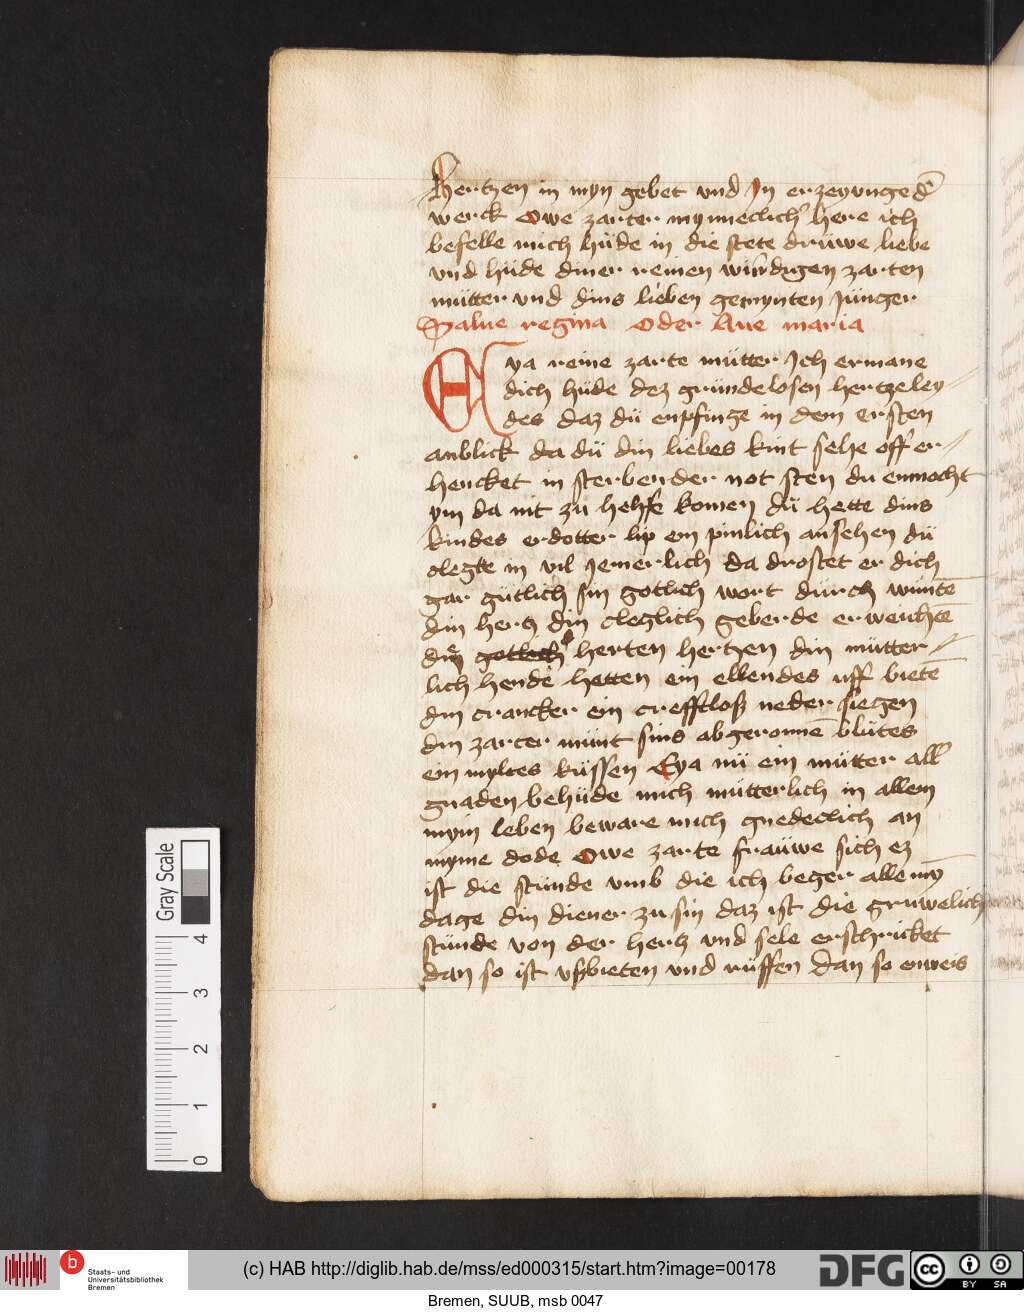 hertzen in myn gebet vnd In erzeyunge d̄
werck Owe zarter mynneclich' here ich
befelle mich hüde in die stete drüwe liebe
vnd hüde diner reinen wirdigen zarten
mütter vnd dins lieben gemynten Jünger
Salue regina oder Aue maria
Eya reine zarte mütter Ich ermane
dich hüde dez gründelosen hertzeley-
des daz dü enpfinge in dem ersten
anblick da dü din liebes kint sehe off er-
hencket in sterbender not sten du enmocht
ym da nit zu helfe komen dü hette dins
kindes erdotter lip ein pinlich ansehen dü
clegte in vil Jemerlich da drostet er dich
gar gütlich sin gotlich wort dürch wuntē
din hertz din cleglich geberde erweichtē
die herten hertzen din mütter-
lich hende hetten ein ellendes uff bietē
din crancker ein crefftloß neder siegen
din zarter münt sins abgeronnē blütes
ein myltes küssen Eya nü ein mütter all'
gnaden behüde mich mütterlich in allem
myin leben beware mich gnedeclich an
myme dode Owe zarte fraüwe sich ez
ist die stünde vmb die ich beger alle my̅
dage din diener zu sin daz ist die gruwelich
stünde von der hertz vnd sele erschricket
dan so ist vßbieten vnd rüffen dan so enweis
Gray Scale
4
3
2
1
0
b
Staats- und
Universitätsbibliothek
Bremen
(c) HAB http://diglib.hab.de/mss/ed000315/start.htm?image=00178
DFG
cc
BY SA
Bremen, SUUB, msb 0047